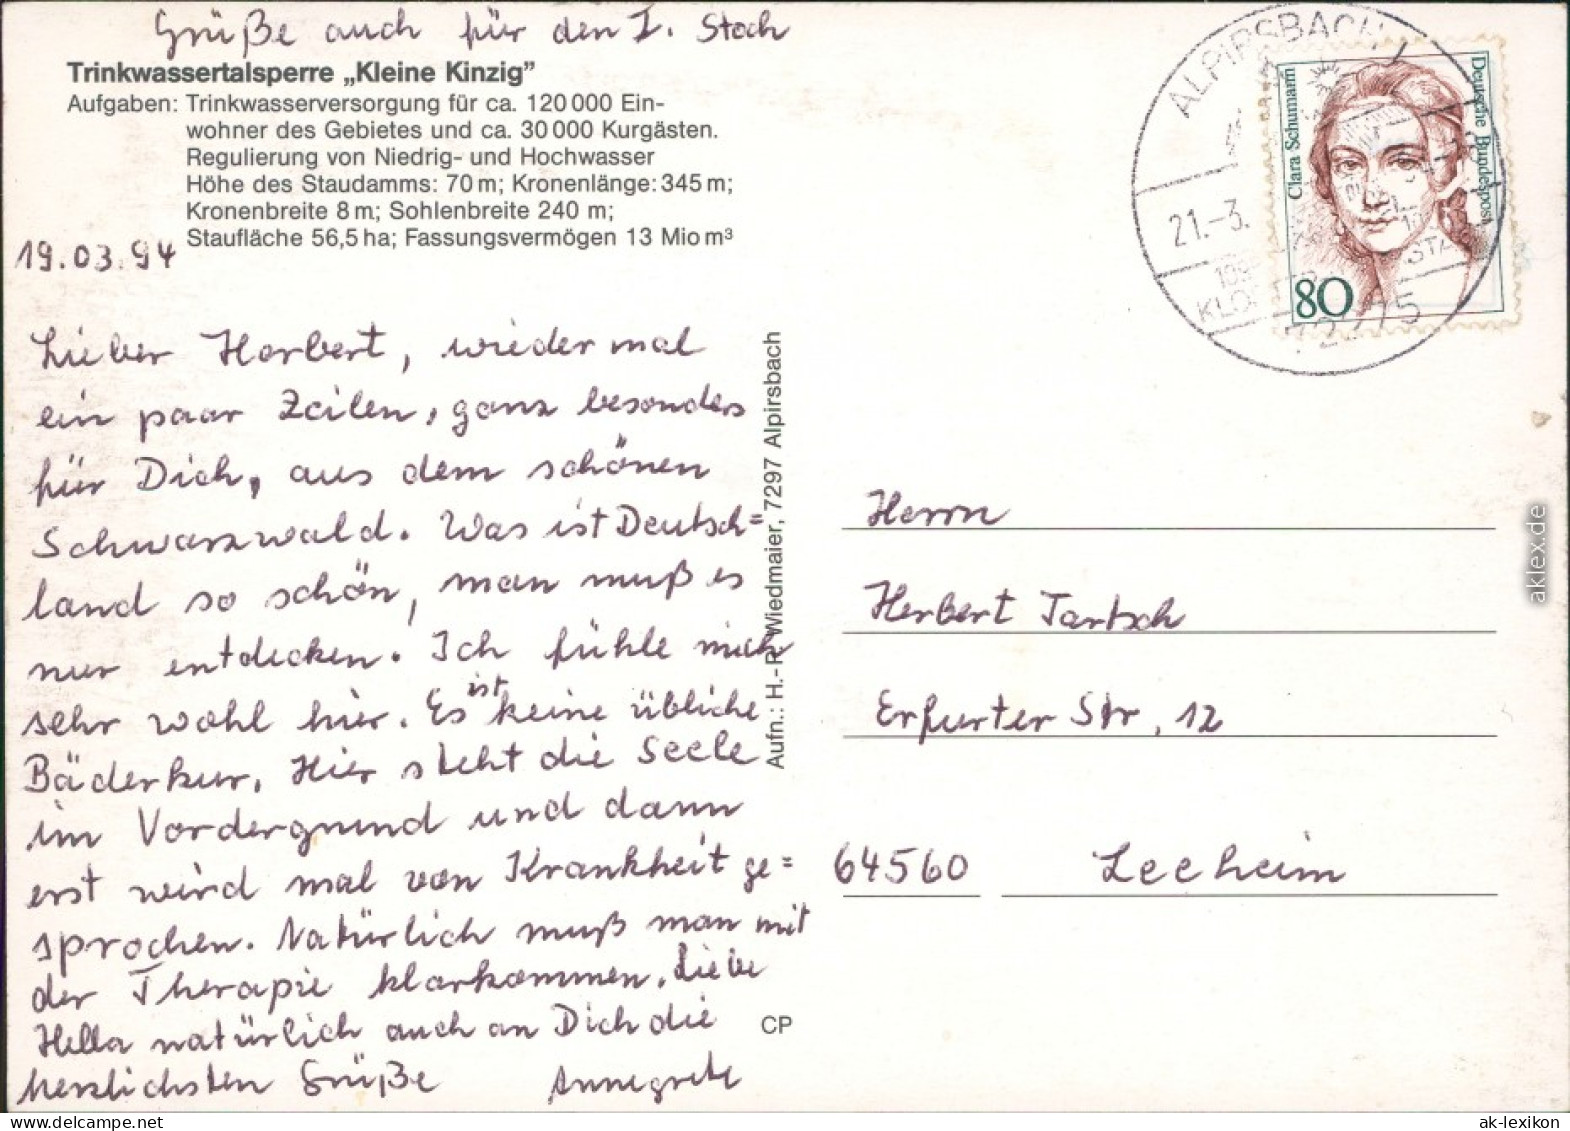 Grüße auch für den I. Stock
Trinkwassertalsperre „Kleine Kinzig”
Aufgaben: Trinkwasserversorgung für ca. 120 000 Ein-
wohner des Gebietes und ca. 30 000 Kurgästen.
Regulierung von Niedrig- und Hochwasser
Höhe des Staudamms: 70 m; Kronenlänge: 345 m;
Kronenbreite 8 m; Sohlenbreite 240 m;
Staufläche 56,5 ha; Fassungsvermögen 13 Mio m³
19.03.94
Lieber Herbert, wieder mal
ein paar Zeilen, ganz besonders
für Dich, aus dem schönen
Schwarzwald. Was ist Deutsch=
land so schön, man muß es
nur entdecken. Ich fühle mich
sehr wohl hier. Es ist keine übliche
Bäderkur. Hier steht die Seele
im Vordergrund und dann
erst wird mal von Krankheit ge=
sprochen. Natürlich muß man mit
der Therapie klarkommen. Liebe
Hella natürlich auch an Dich die
herzlichsten Grüße Annegrete
Aufn.: H.-P. Wiedmaier, 7297 Alpirsbach
CP
ALPIRSBACH 1
21.-3.
72275
Clara Schumann
Deutsche Bundespost
80
Herrn
Herbert Tartsch
Erfurter Str. 12
64560 Leeheim
aklex.de
ak-lexikon